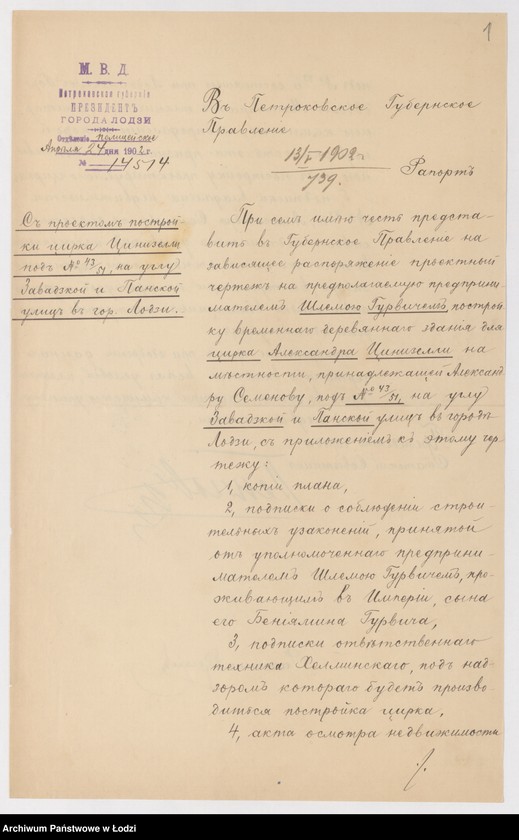 1
М. В. Д.
Петроковская губернія
ПРЕЗИДЕНТЪ
ГОРОДА ЛОДЗИ
Отдѣленіе полицейское
Апрѣля 24 дня 1902 г.
№ 14514
Въ Петроковское Губернское
Правленіе
13/V 1902 г.
739.
Рапортъ
Съ проектомъ построй-
ки цирка Цинизелли
подъ № 43/51, на углу
Завадзкой и Панской
улицъ въ гор. Лодзи.
При семъ имѣю честь предста-
вить въ Губернское Правленіе на
зависящее распоряженіе проектный
чертежъ на предполагаемую предприни-
мателемъ Шлемою Гурвичемъ, построй-
ку временнаго деревяннаго зданія для
цирка Александра Цинизелли на
мѣстности, принадлежащей Александ-
ру Семенову, подъ № 43/51, на углу
Завадзкой и Панской улицъ въ городѣ
Лодзи, съ приложеніемъ къ этому чер-
тежу:
1, копій плана,
2, подписки о соблюденіи строи-
тельныхъ узаконеній, принятой
отъ уполномоченнаго предприни-
мателемъ Шлемою Гурвичемъ, про-
живающимъ въ Имперіи, сына
его Беніямина Гурвича,
3, подписки отвѣтственнаго
техника Хелминскаго, подъ над-
зоромъ котораго будетъ произво-
диться постройка цирка,
4, акта осмотра недвижимости
./.
Archiwum Państwowe w Łodzi